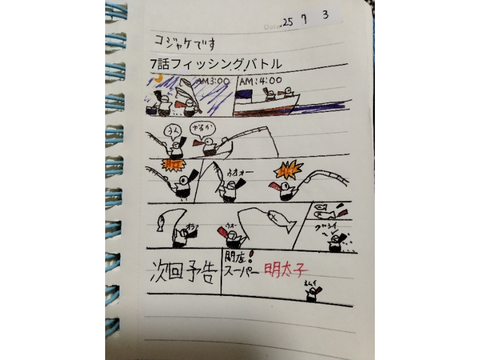 25 7 3
コジャケです
7話フィッシングバトル
AM3:00
AM:4:00
うん
やるか
うおォー
ウオー
次回予告
開店!
スーパー明太子